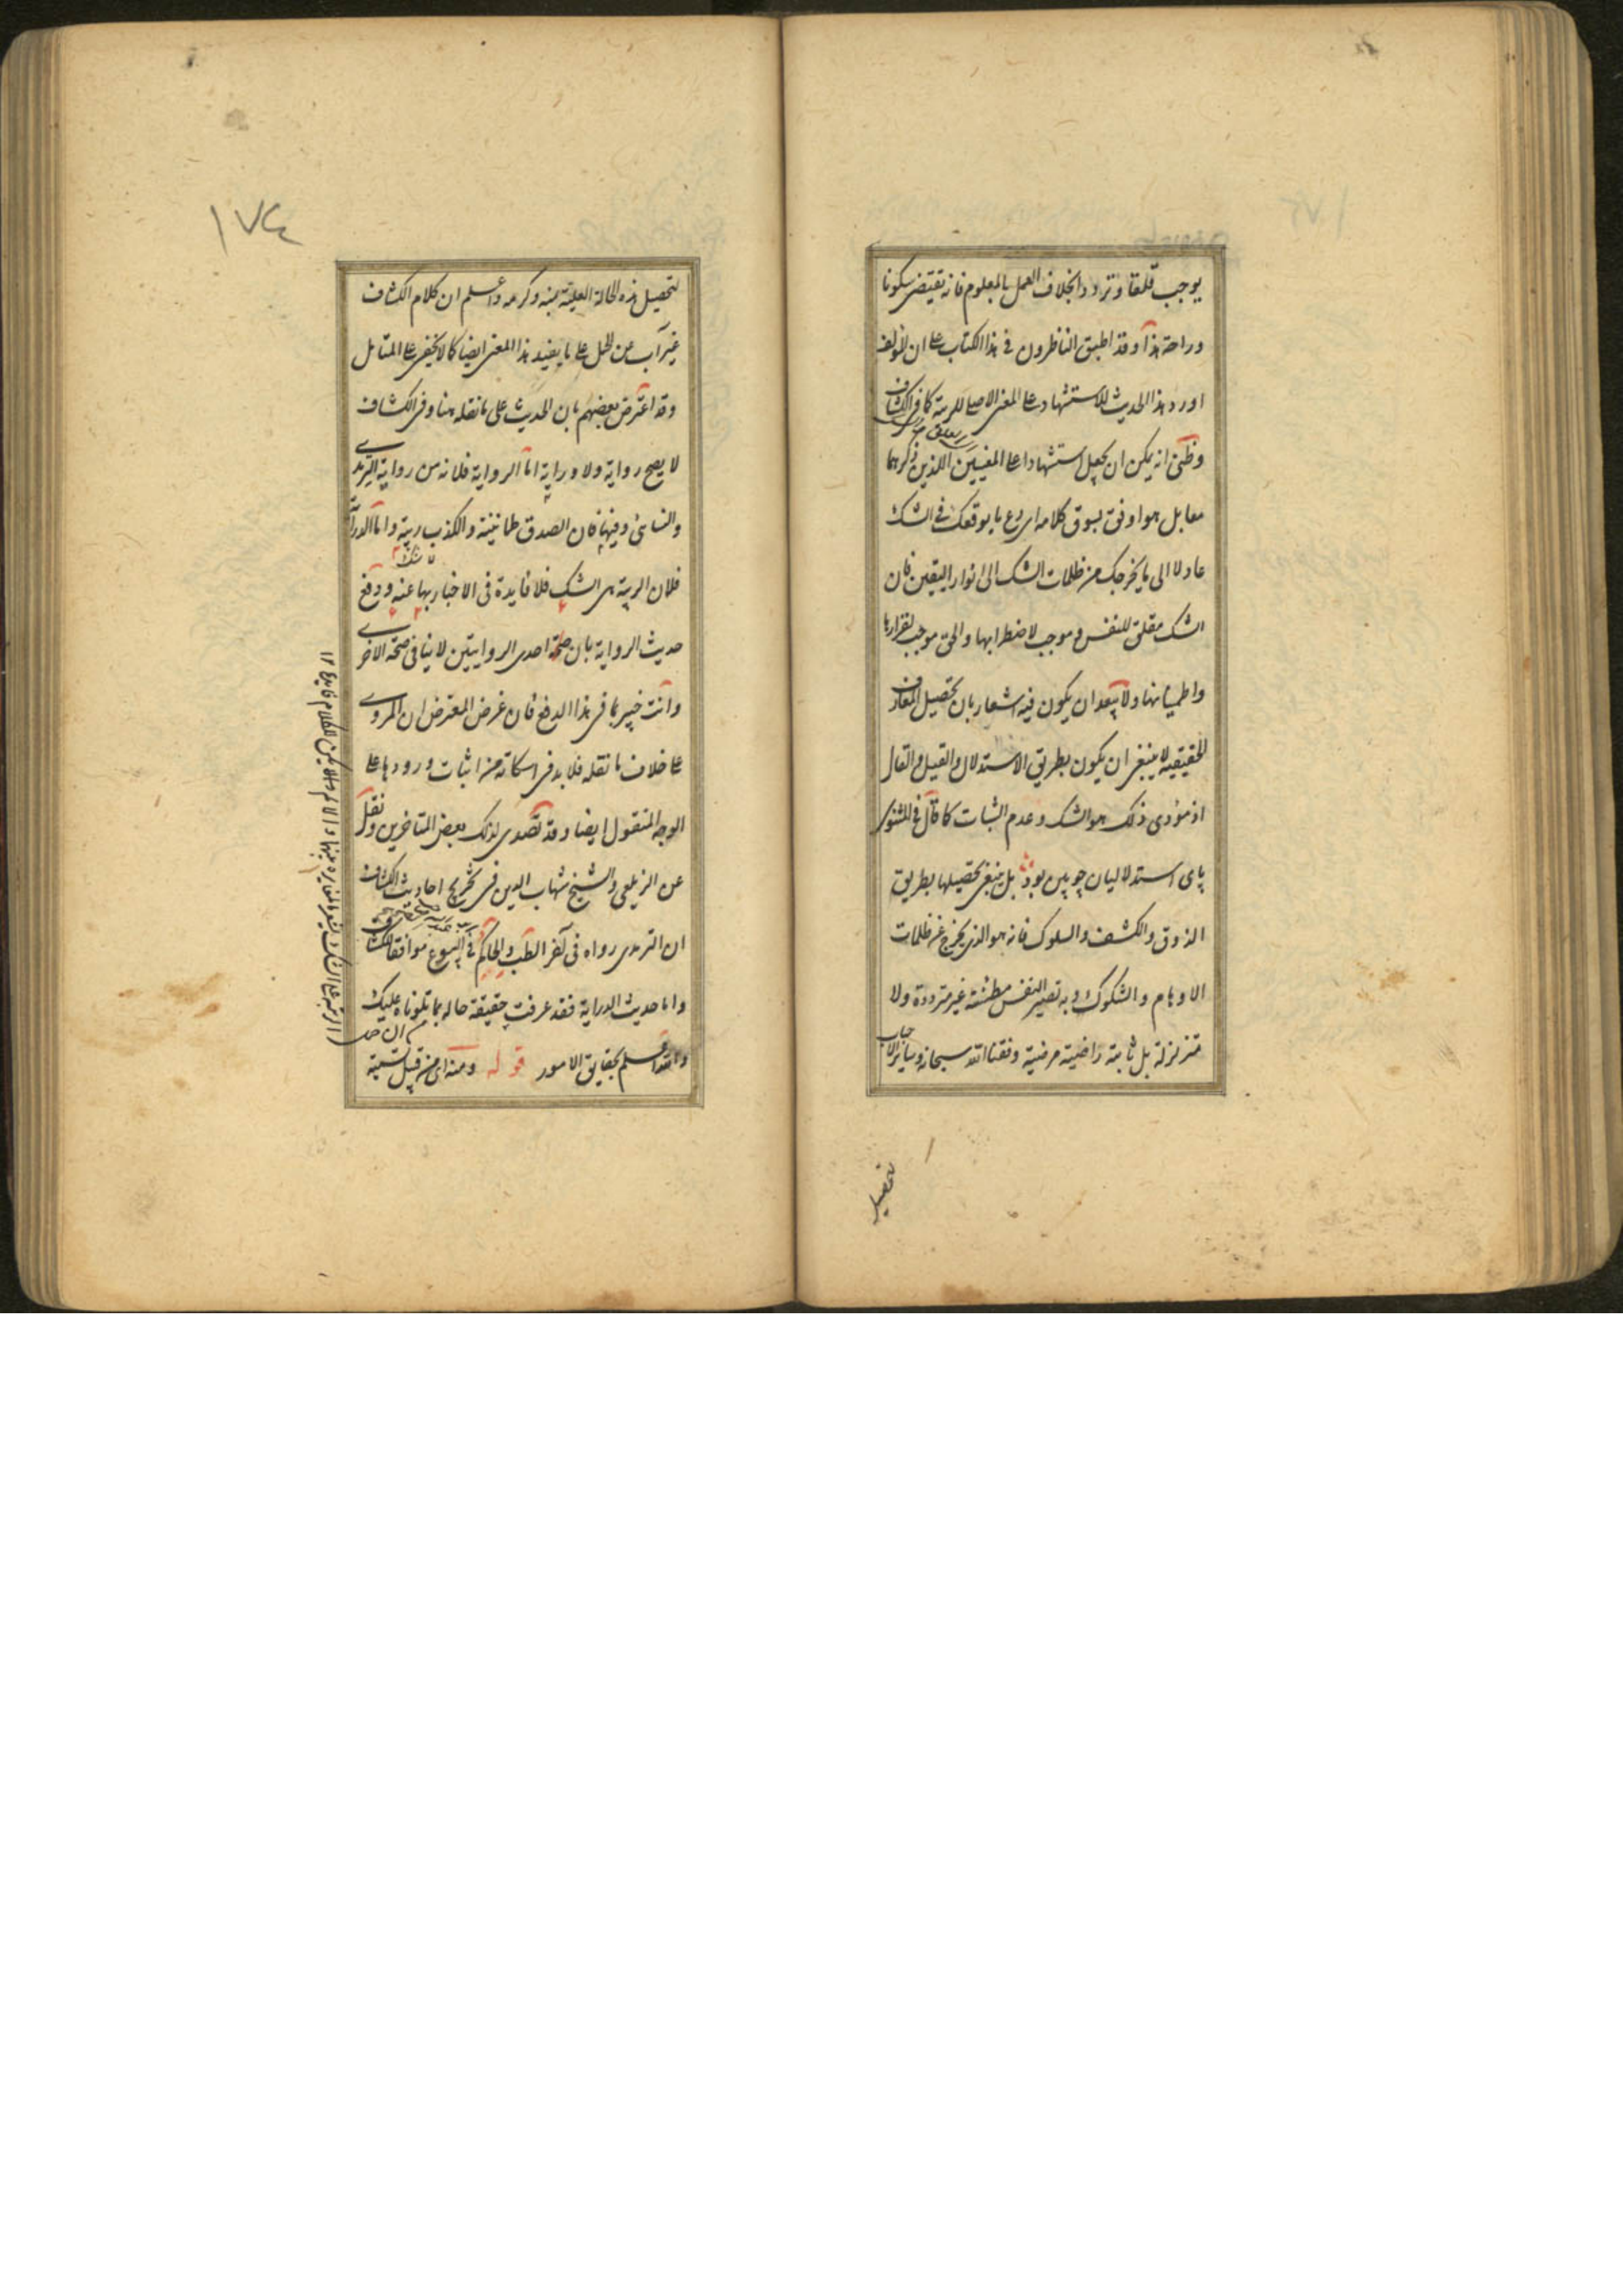 يوجب قلقا وترددا بخلاف العمل بالمعلوم فانه يقتضى سكونا
وراحة هذا وقد اطبق الناظرون فى هذا الكتاب على ان المؤلف
اورد هذا الحديث للاستشهاد على المعنى الاصلى للريبة كما فى الكشاف
وظنى انه يمكن ان يجعل استشهادا على المعنيين اللذين ذكرهما
معا بل هو اوفق بسوق كلامه اى دع ما يوقعك فى الشك
عادلا الى ما يخرجك من ظلمات الشك الى انوار اليقين فان
الشك مقلق للنفس وموجب لاضطرابها والحق موجب لقرارها
واطميانها ولا يبعد ان يكون فيه اشعار بان تحصيل المعارف
الحقيقية لا ينبغى ان يكون بطريق الاستدلال والقيل والقال
اذ مؤدى ذلك هو الشك وعدم الثبات كما قال فى المثنوى
پاى استدلاليان چوبين بود بل ينبغى تحصيلها بطريق
الذوق والكشف والسلوك فانه هو الذى يخرج عن ظلمات
الاوهام والشكوك وبه تصير النفس مطمئنة غير مترددة ولا
متزلزلة بل ثابتة راضية مرضية وفقنا الله سبحانه وسائر الاحباب
لتحصيل
١٧٤
لتحصيل هذه الحالة العلية بمنه وكرمه واعلم ان كلام الكشاف
غير آب عن الحمل على ما يفيد هذا المعنى ايضا كما لا يخفى على المتامل
وقد اعترض بعضهم بان الحديث على ما نقله هنا وفى الكشاف
لا يصح رواية ولا دراية اما الرواية فلانه من رواية الترمذى
والنسائى وفيهما فان الصدق طمانينة والكذب ريبة واما الدراية
فلان الريبة هى الشك فلا فايدة فى الاخبار بها عنه ودفع
حديث الرواية بان صحة احدى الروايتين لا ينافى صحة الاخرى
وانت خبير بما فى هذا الدفع فان غرض المعترض ان المروى
على خلاف ما نقله فلا بد فى اسكاته من اثبات ورودها على
الوجه المنقول ايضا وقد تصدى لذلك بعض المتاخرين ونقل
عن الزيلعى والشيخ شهاب الدين فى تخريج احاديث الكشاف
ان الترمذى رواه فى آخر الطب والحاكم فى البيوع موافقا للكشاف
واما حديث الدراية فقد عرفت حقيقة حاله بما تلوناه عليك
والله اعلم بحقايق الامور قوله ومنه اى من قبيل تسمية